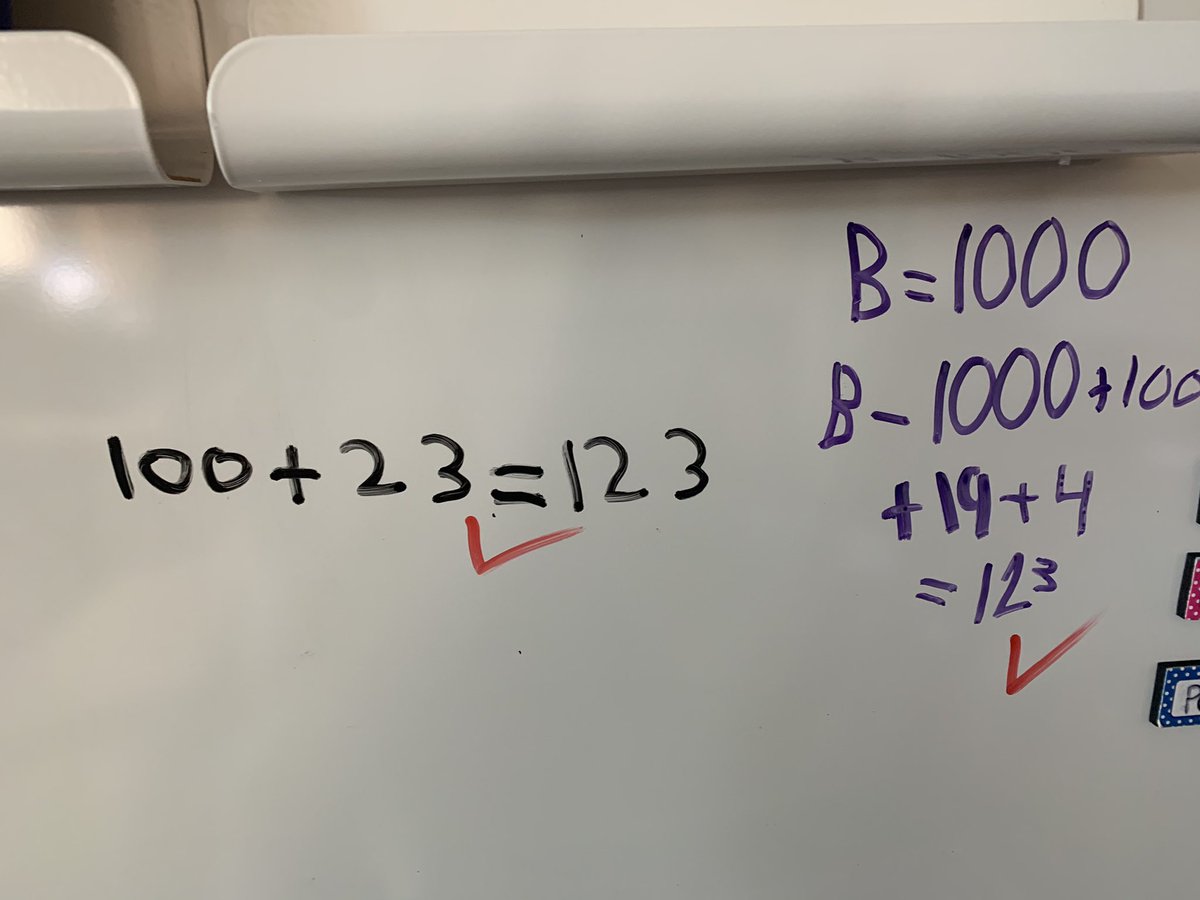 100+23=123
B=1000
B-1000+100
+19+4
=123